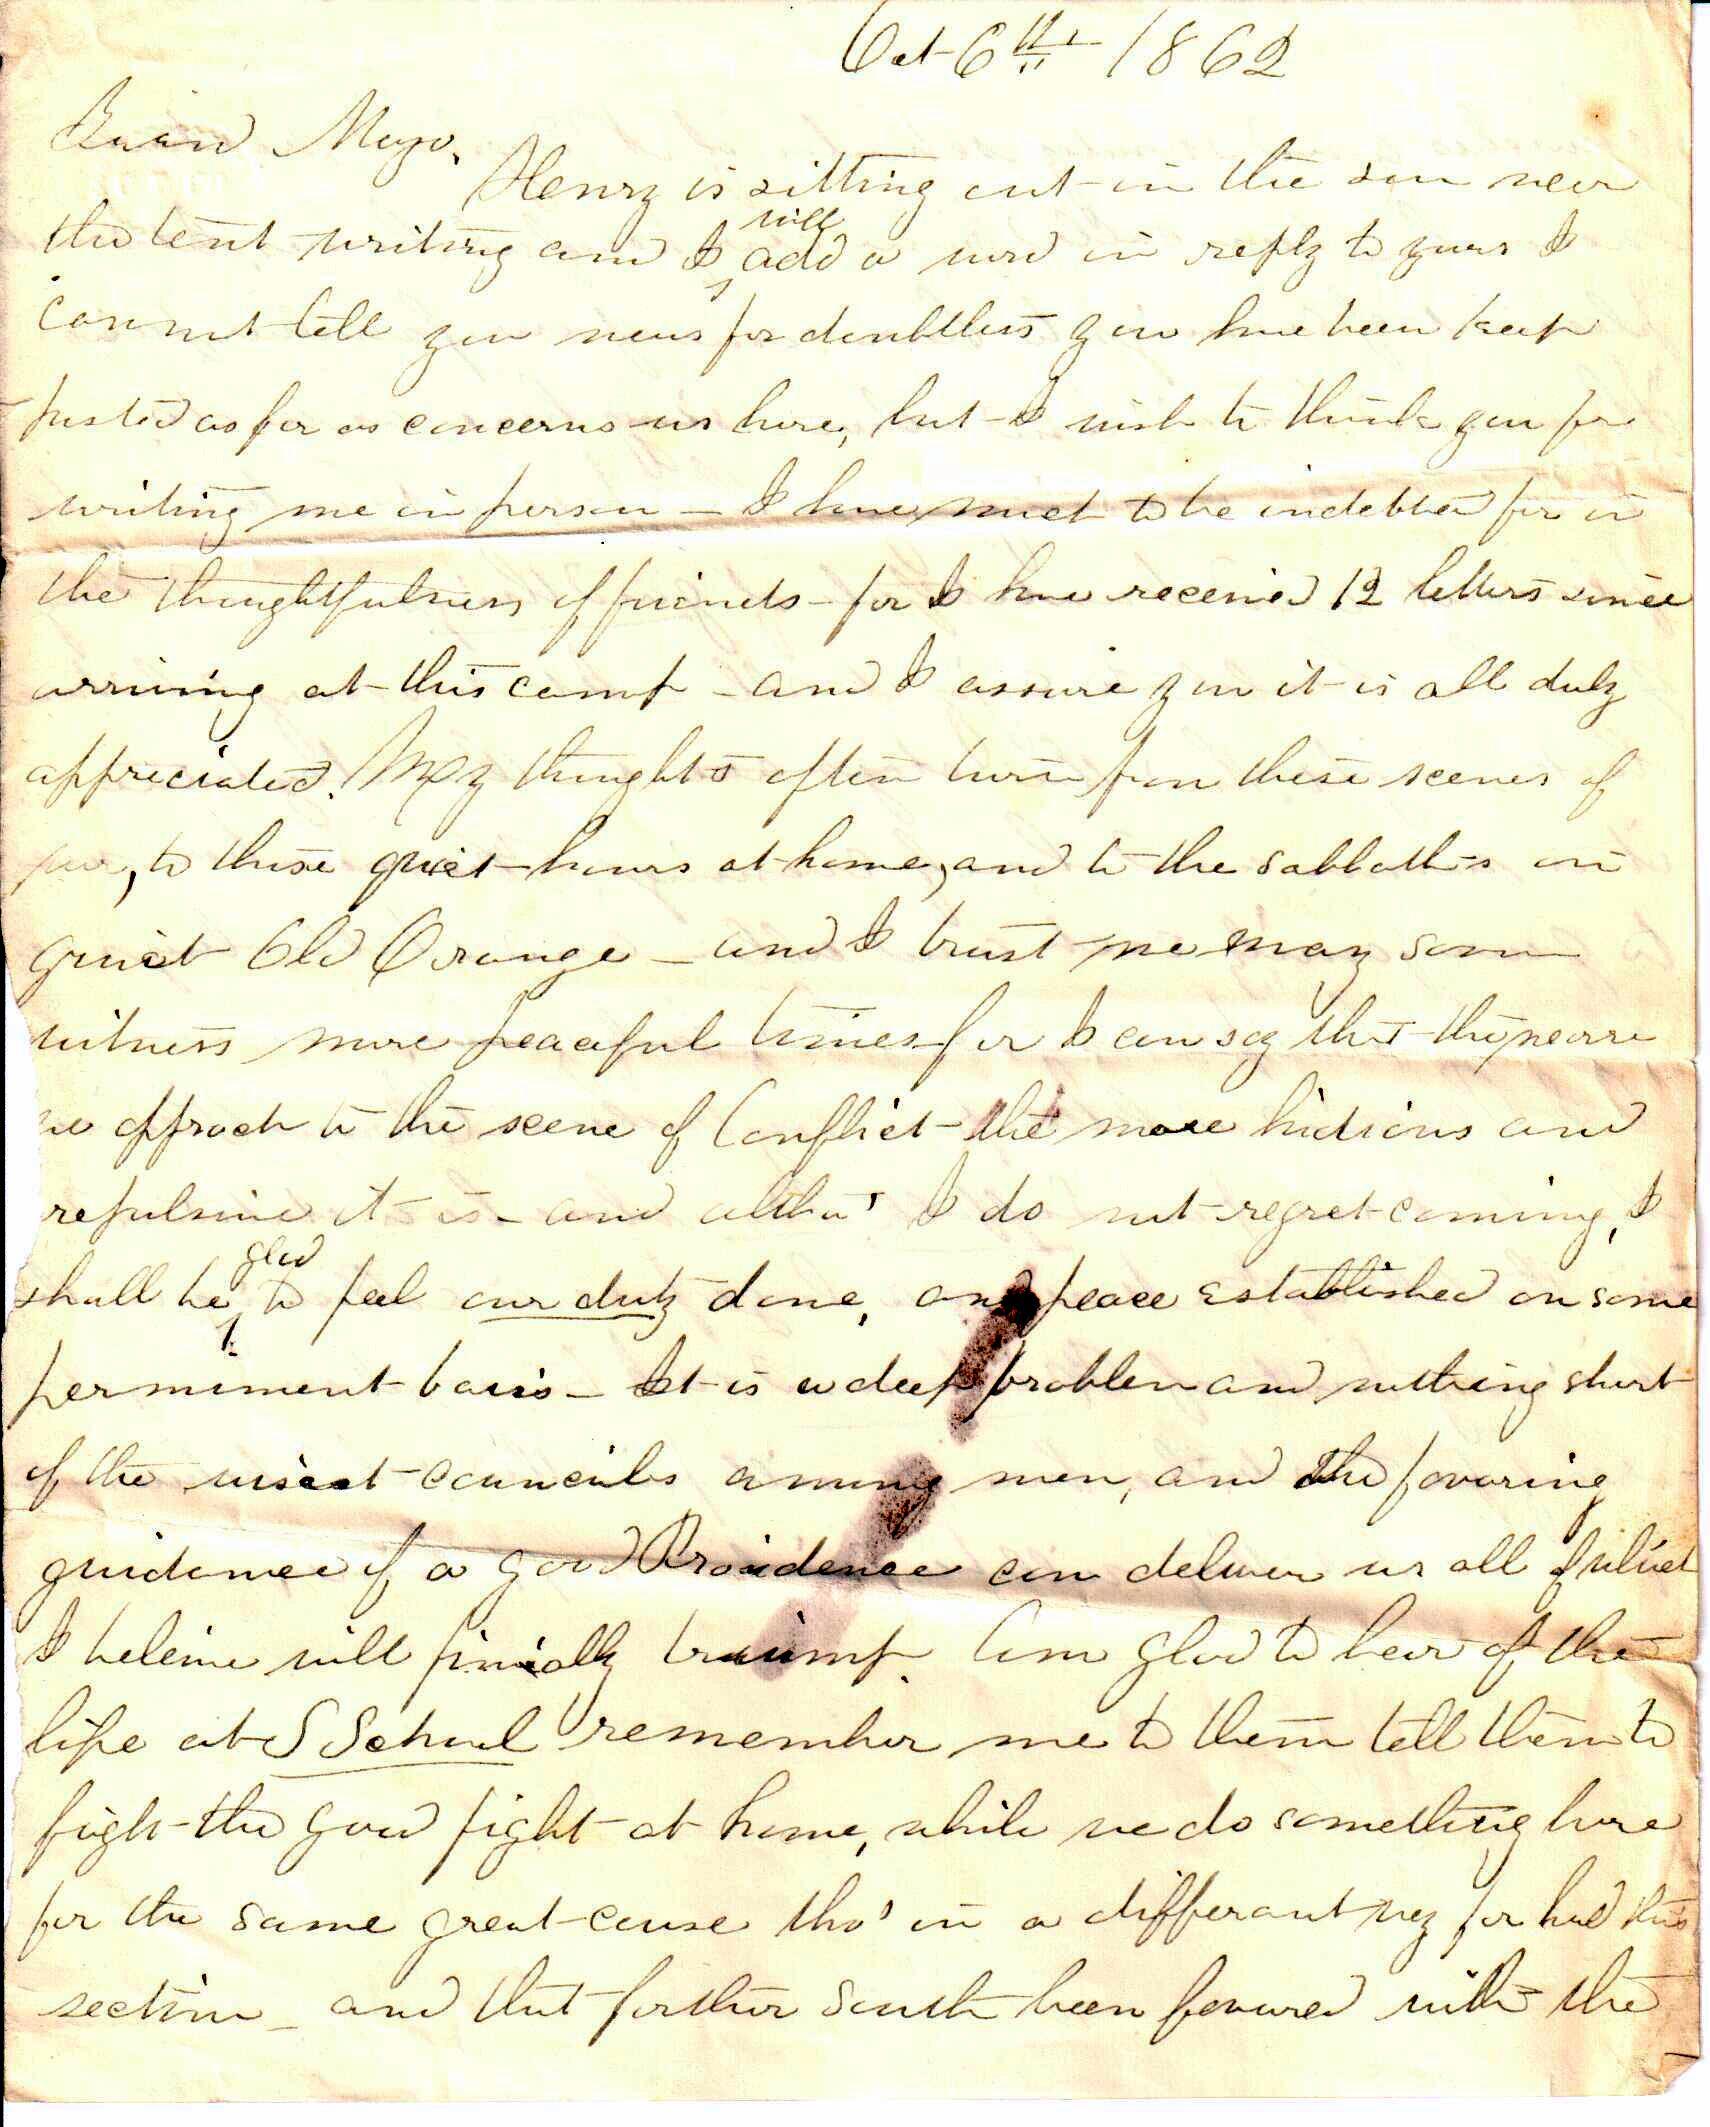 Oct 6th 1862
Mayo.
Henry is sitting out in the sun near
the tent writing and I will add a word in reply to yours I
cannot tell you news for doubtless you have been keep
posted as far as concerns us here, but I wish to thank you for
writing me in person - I have much to be indebted for in
the thoughtfulness of friends - for I have received 12 letters since
arriving at this camp - and I assure you it is all duly
appreciated. My thoughts often turn from these scenes of
war, to those quiet hours at home, and to the sabbaths in
quiet Old Orange - and I trust we may soon
witness more peaceful times for I can say that the nearer
we approach to the scene of Conflict the more hidious and
repulsive it is - and altho' I do not regret coming, I
shall be glad to feel our duty done, and peace established on some
perminent basis - It is a deep problem and nothing short
of the wisest councils among men, and the favoring
guidance of a good Providence can deliver us all of which
I beleive will finially triump. Am glad to hear of the
life at S School remember me to them tell them to
figh the good fight at home, while we do something here
for the same great cause tho' in a differant way for had this
section - and that farther South been favored with the